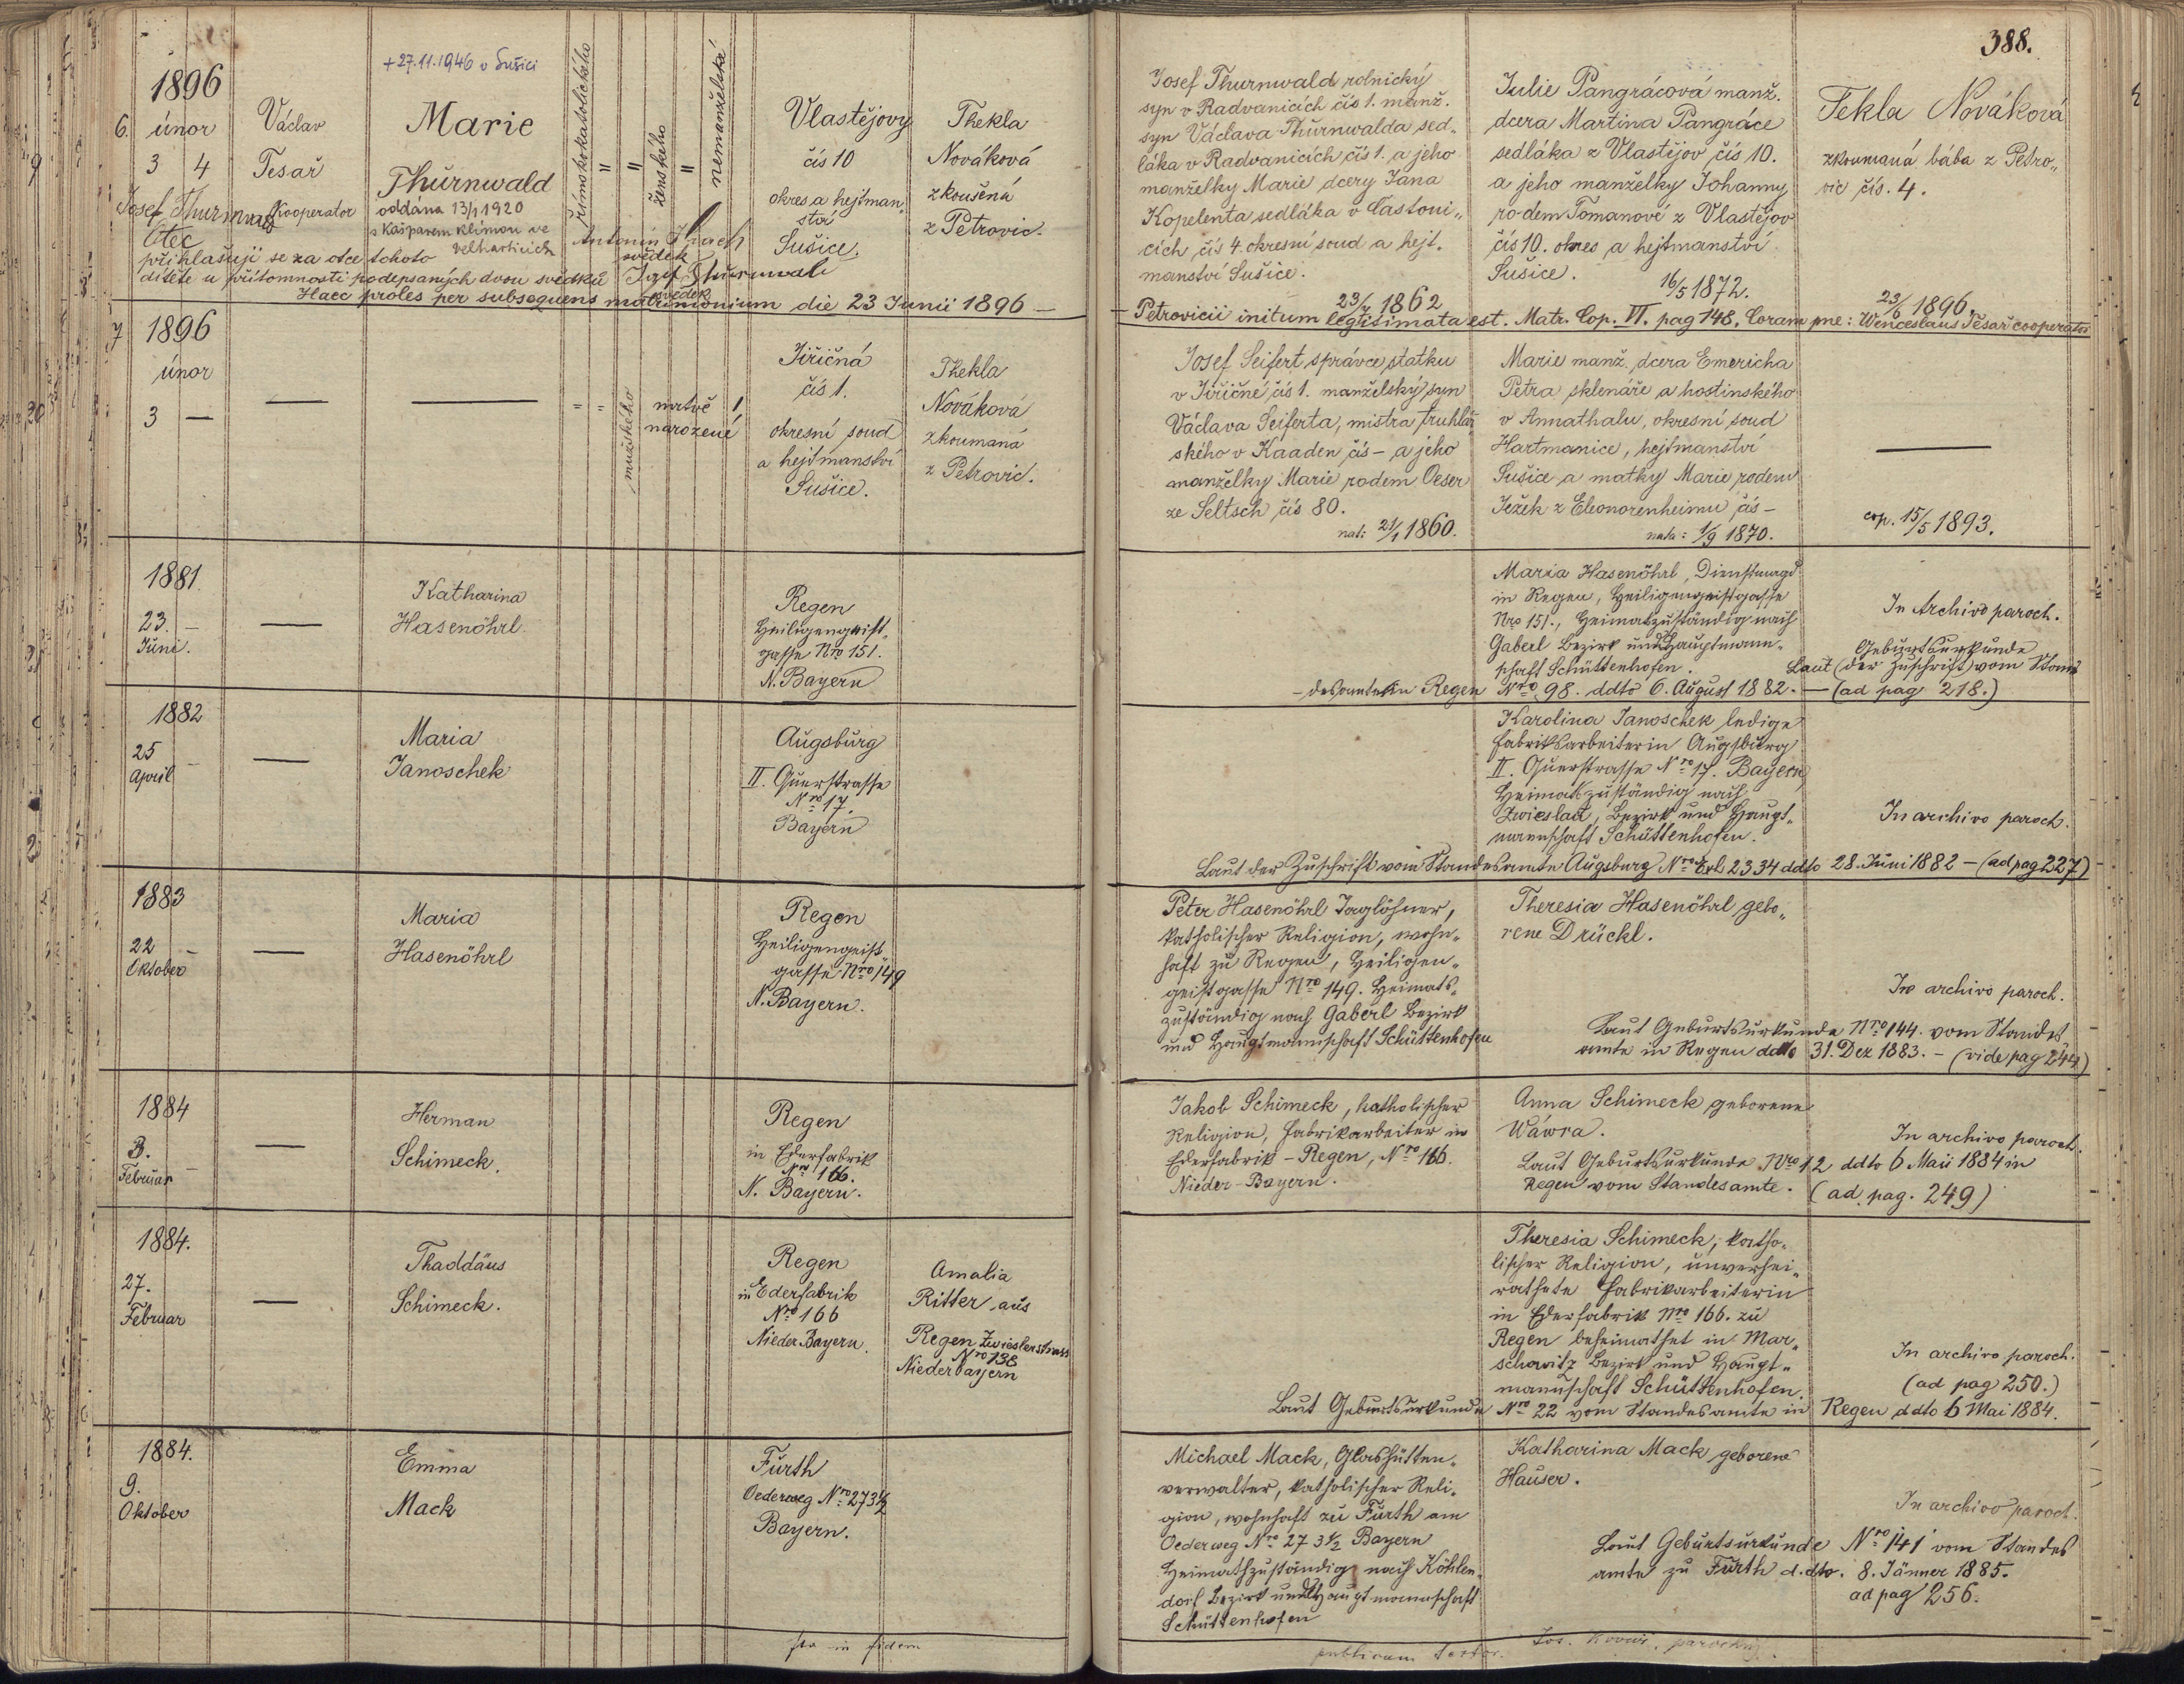 388.
+27.11.1946 v Sušici
1896
6. únor
3 4
Václav
Tesař
Kooperator
Marie
Thürnwald
oddána 13/1 1920
s Kašparem Klimou ve
Velharticích
římskokatolického
"
"
ženského
"
nemanželské
Vlastějovy
čís 10
okres a hejtman„
ství
Sušice.
Thekla
Nováková
zkoušená
z Petrovic.
Josef Thurnwald
Otec
přihlašuji se za otce tohoto
dítěte u přítomnosti podepsaných dvou svědků
Antonín
svědek
Josef Thürnwald
svědek
Josef Thurnwald rolnický
syn v Radvanicích čís 1. manž.
syn Václava Thürnwalda sed„
láka v Radvanicích čís 1. a jeho
manželky Marie dcery Jana
Kopelenta sedláka v Častoni„
cích čís 4. okresní soud a hejt.
manství Sušice.
23/4 1862
Julie Pangrácová manž.
dcera Martina Pangráce
sedláka z Vlastějov čís 10.
a jeho manželky Johanny
rodem Tomanové z Vlastějov
čís 10. okres a hejtmanství
Sušice.
16/5 1872.
Tekla Nováková
zkoumaná bába z Petro„
vic čís. 4.
23/6 1896.
Haec proles per subsequens matrimonium die 23 Junii 1896 — Petrovicii initum legitimata est. Matr. Cop. VI. pag 148. Coram me: Wenceslaus Tesař cooperator
7 1896
únor
3 —
—
—
= =
mužského
mrtvě
narozené
1
Jiřičná
čís 1.
okresní soud
a hejtmanství
Sušice.
Thekla
Nováková
zkoumaná
z Petrovic.
Josef Seifert, správce statku
v Jiřičné čís 1. manželský syn
Václava Seiferta, mistra truhlář
ského v Kaaden čís — a jeho
manželky Marie rodem Oeser
ze Seltsch čís 80.
nat: 21/1 1860.
Marie manž. dcera Emericha
Petra sklenáře a hostinského
v Annathalu, okresní soud
Hartmanice, hejtmanství
Sušice a matky Marie rodem
Ježek z Eleonorenheimu čís —
nata: 1/9 1870.
—
cop. 15/5 1893.
1881.
23. —
Juni.
—
Katharina
Hasenöhrl.
Regen
Heiligengeist„
gasse Nro 151.
N. Bayern
Maria Hasenöhrl, Dienstmagd
in Regen, Heiligengeistgasse
Nro 151., Heimatszuständig nach
Gaberl Bezirk und Hauptmann„
schaft Schüttenhofen.
In Archivo paroch.
Geburtsurkunde
Laut (der Zuschrift) vom Stan
desamte in Regen Nro 98. ddto 6. August 1882. — (ad pag 218.)
1882
25 —
April
—
Maria
Janoschek
Augsburg
II. Querstrasse
Nro 17.
Bayern
Karolina Janoschek ledige
Fabriksarbeiterin Augsburg
II. Querstrasse Nro 17. Bayern,
Heimatszuständig nach
Zwieslau, Bezirk und Haupt„
mannschaft Schüttenhofen.
In archivo paroch.
Laut der Zuschrift vom Standesamte Augsburg Nro Erl 2334 ddto 28. Juni 1882 — (ad pag 227)
1883
22 —
Oktober
—
Maria
Hasenöhrl
Regen
Heiligengeist„
gasse Nro 149
N. Bayern.
Peter Hasenöhrl Taglöhner,
katholischer Religion, wohn„
haft zu Regen, Heiligen„
geistgasse Nro 149. Heimats„
zuständig nach Gaberl Bezirk
und Hauptmannschaft Schüttenhofen
Theresia Hasenöhrl gebo„
rene Drückl.
In archivo paroch.
Laut Geburtsurkunde Nro 144. vom Standes
amte in Regen ddto 31. Dez 1883. — (vide pag 244)
1884
3. —
Februar
—
Herman
Schimeck.
Regen
in Ederfabrik
Nro 166.
N. Bayern.
Jakob Schimeck, katholischer
Religion, Fabrikarbeiter in
Ederfabrik – Regen, Nro 166.
Nieder-Bayern.
Anna Schimeck geborene
Wawra.
In archivo paroch.
Laut Geburtsurkunde Nro 12 ddto 6 Maii 1884 in
Regen vom Standesamte. (ad pag. 249)
1884.
27.
Februar
—
Thaddäus
Schimeck.
Regen
in Ederfabrik
Nro 166
Nieder Bayern.
Amalia
Ritter aus
Regen Zwieslerstrass
Nro 138
Niederbayern
Theresia Schimeck, katho„
lischer Religion, unverhei„
rathete Fabrikarbeiterin
in Ederfabrik Nro 166. zu
Regen beheimathet in Mar„
schowitz Bezirk und Haupt„
mannschaft Schüttenhofen.
In archivo paroch.
(ad pag 250.)
Laut Geburtsurkunde Nro 22 vom Standesamte in Regen ddto 6 Mai 1884.
1884.
9.
Oktober
Emma
Mack
Fürth
Oederweg Nro 273½
Bayern.
Michael Mack, Glashütten„
verwalter, katholischer Reli„
gion, wohnhaft zu Fürth am
Oederweg Nro 273½ Bayern
Heimathzuständig nach Köhlen„
dorf Bezirk und Hauptmannschaft
Schüttenhofen
Katharina Mack geborene
Hauser.
In archivo paroch.
Laut Geburtsurkunde Nro 141 vom Standes
amte zu Fürth d.dto. 8. Jänner 1885.
ad pag 256.
in fidem
publicam testor. Jos. parochus.